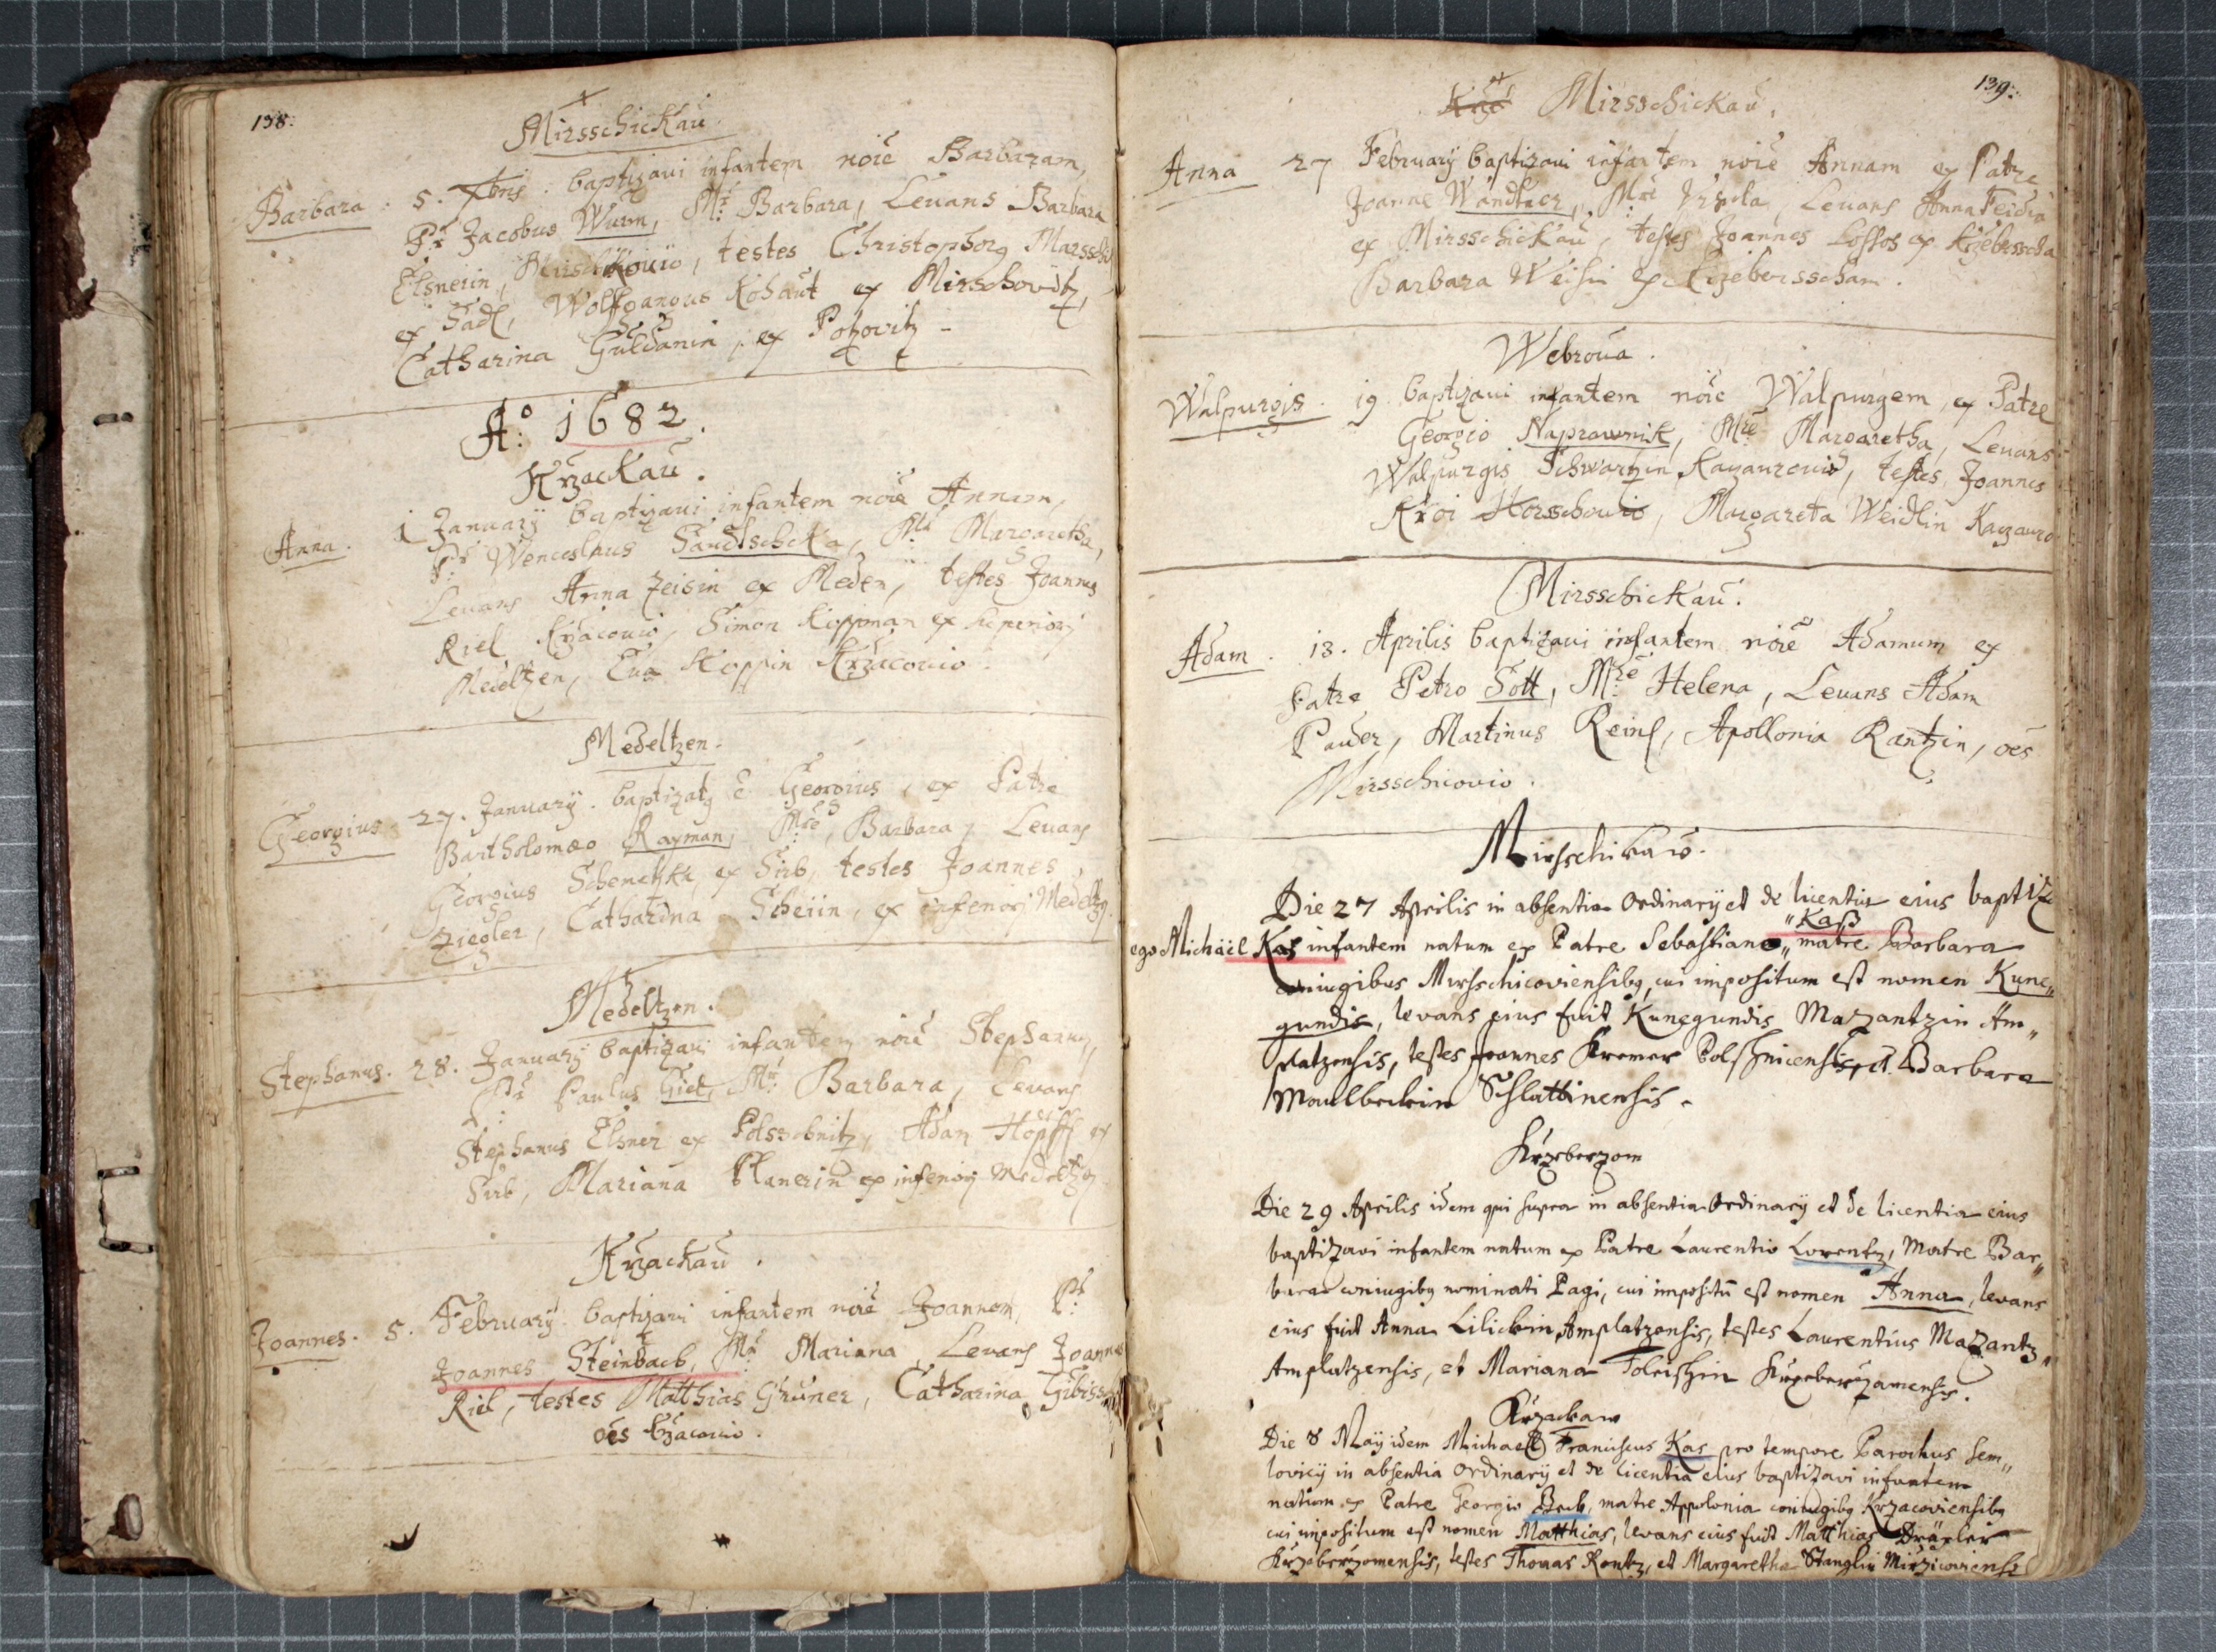 138:
Mirsschickau.
Barbara. 5. Xbris. baptizavi infantem noie Barbaram,
Pr Jacobus Wurm, Mr: Barbara, Levans Barbara
Elsnerin, testes Christophorg
ex Sadl, Wolfgangus Kohaut ex Mirschovitz,
Catharina Guldanin, ex Potzovitz
A:o 1682.
Krzackau.
Anna. 1 January baptizavi infantem noie Annam,
Pr Wenceslaus Sandtschcka, Mr Margaretha,
Levans Anna Zeisin ex Meden, testes Joannes
Riel Krzacovio, Simon Koppman ex superiorj
Medeltzen, Eva Koppin Krzacovio.
Medeltzen.
Georgius 27. January. baptizatg ē Georgius, ex Patre
Bartholomæo Rayman, Mre, Barbara, Levans
Georgius ex Sirb, testes Joannes
Ziegler, Catharina Scheiin, ex inferiorj
Medeltzen.
Stephanus. 28. January baptizavi infantem noie
Pr: Paulus Giel, Mr: Barbara, Levans
Stephanus Elsner ex Polsschnitz, Adam Höpffl ex
Sirb, Mariana Planerin ex inferiorj Medeltzen
Krzackau.
Joannes. 5. February. baptizavi infantem noie Joannem, Pr:
Joannes Steinbach, Mr Mariana, Levans Joannes
Riel, testes Matthias Grüner, Catharina
oēs Krzacovio.
139:
Mirsschickau.
Anna 27 February baptizavi infantem noie Annam ex Patre
Joanne Wandtner, Mre Levans Anna
ex Mirsschickau, testes Joannes Lossos ex
Barbara Weisin ex
Webrova.
Walpurgis. 19. baptizavi infantem noie Walpurgem, ex Patre
Georgio Naprawnik, Mre Margaretha, Levans
Walpurgis Schwartzin testes Joannes
Kroi Horschovio, Margareta Weidlin
Mirsschickau.
Adam. 13. Aprilis baptizavi infantem noie Adamum ex
Patre Petro Sott, Mre Helena, Levans Adam
Pauer, Martinus Reinl, Apollonia Rantzin, oēs
Mirsschicovio.
Mirschikaw.
Die 27 Aprilis in absentia Ordinarij et de licentia eius baptiza
„Kaß
ego Michäel Kas infantem natum ex Patre Sebastiano„ matre Barbara
coniugibus Mirschicoviensibg, cui impositum est nomen Kune„
gundis, levans eius fuit Kunegundis Mazantzin Am„
platzensis, testes Joannes Kremer et Barbara
Schlattinensis.
Krzeberzom
Die 29 Aprilis idem qui supra in absentia Ordinarij et de licentia eius
baptizavi infantem natum ex Patre Laurentio Lorentz, Matre Bar„
bara coniugibg nominati Pagi, cui impositū est nomen Anna, levans
eius fuit Anna Lilickin Amplatzensis, testes Laurentius Mazantz
Amplatzensis, et Mariana Krzeberzamensis.
Krzackaw
Die 8 Maÿ idem Michael Franciscus Kas pro tempore Parochus Sem„
lovicij in absentia Ordinarij et de licentia eius baptizavi infantem
natum ex Patre Georgio Beck, matre Appolonia coniugibg Krzacoviensibg
cui impositum est nomen Matthias, levans eius fuit Matthias Dräxler
Krzeberzomensis, testes Thomas Rontz, et Margaretha Stanglin